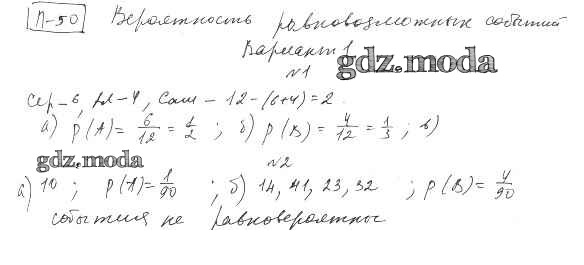 П-50 Вероятность равновозможных событий
Вариант 1
№1 gdz.moda
Сер – 6, – 4, Саш – 12-(6+4)=2
а) p(A)= 6/12 = 1/2 ; б) p(B) = 4/12 = 1/3 ; в)
gdz.moda №2
а) 10 ; p(A)= 1/90 ; б) 14, 41, 23, 32 ; p(B)= 4/90
события не равновероятные